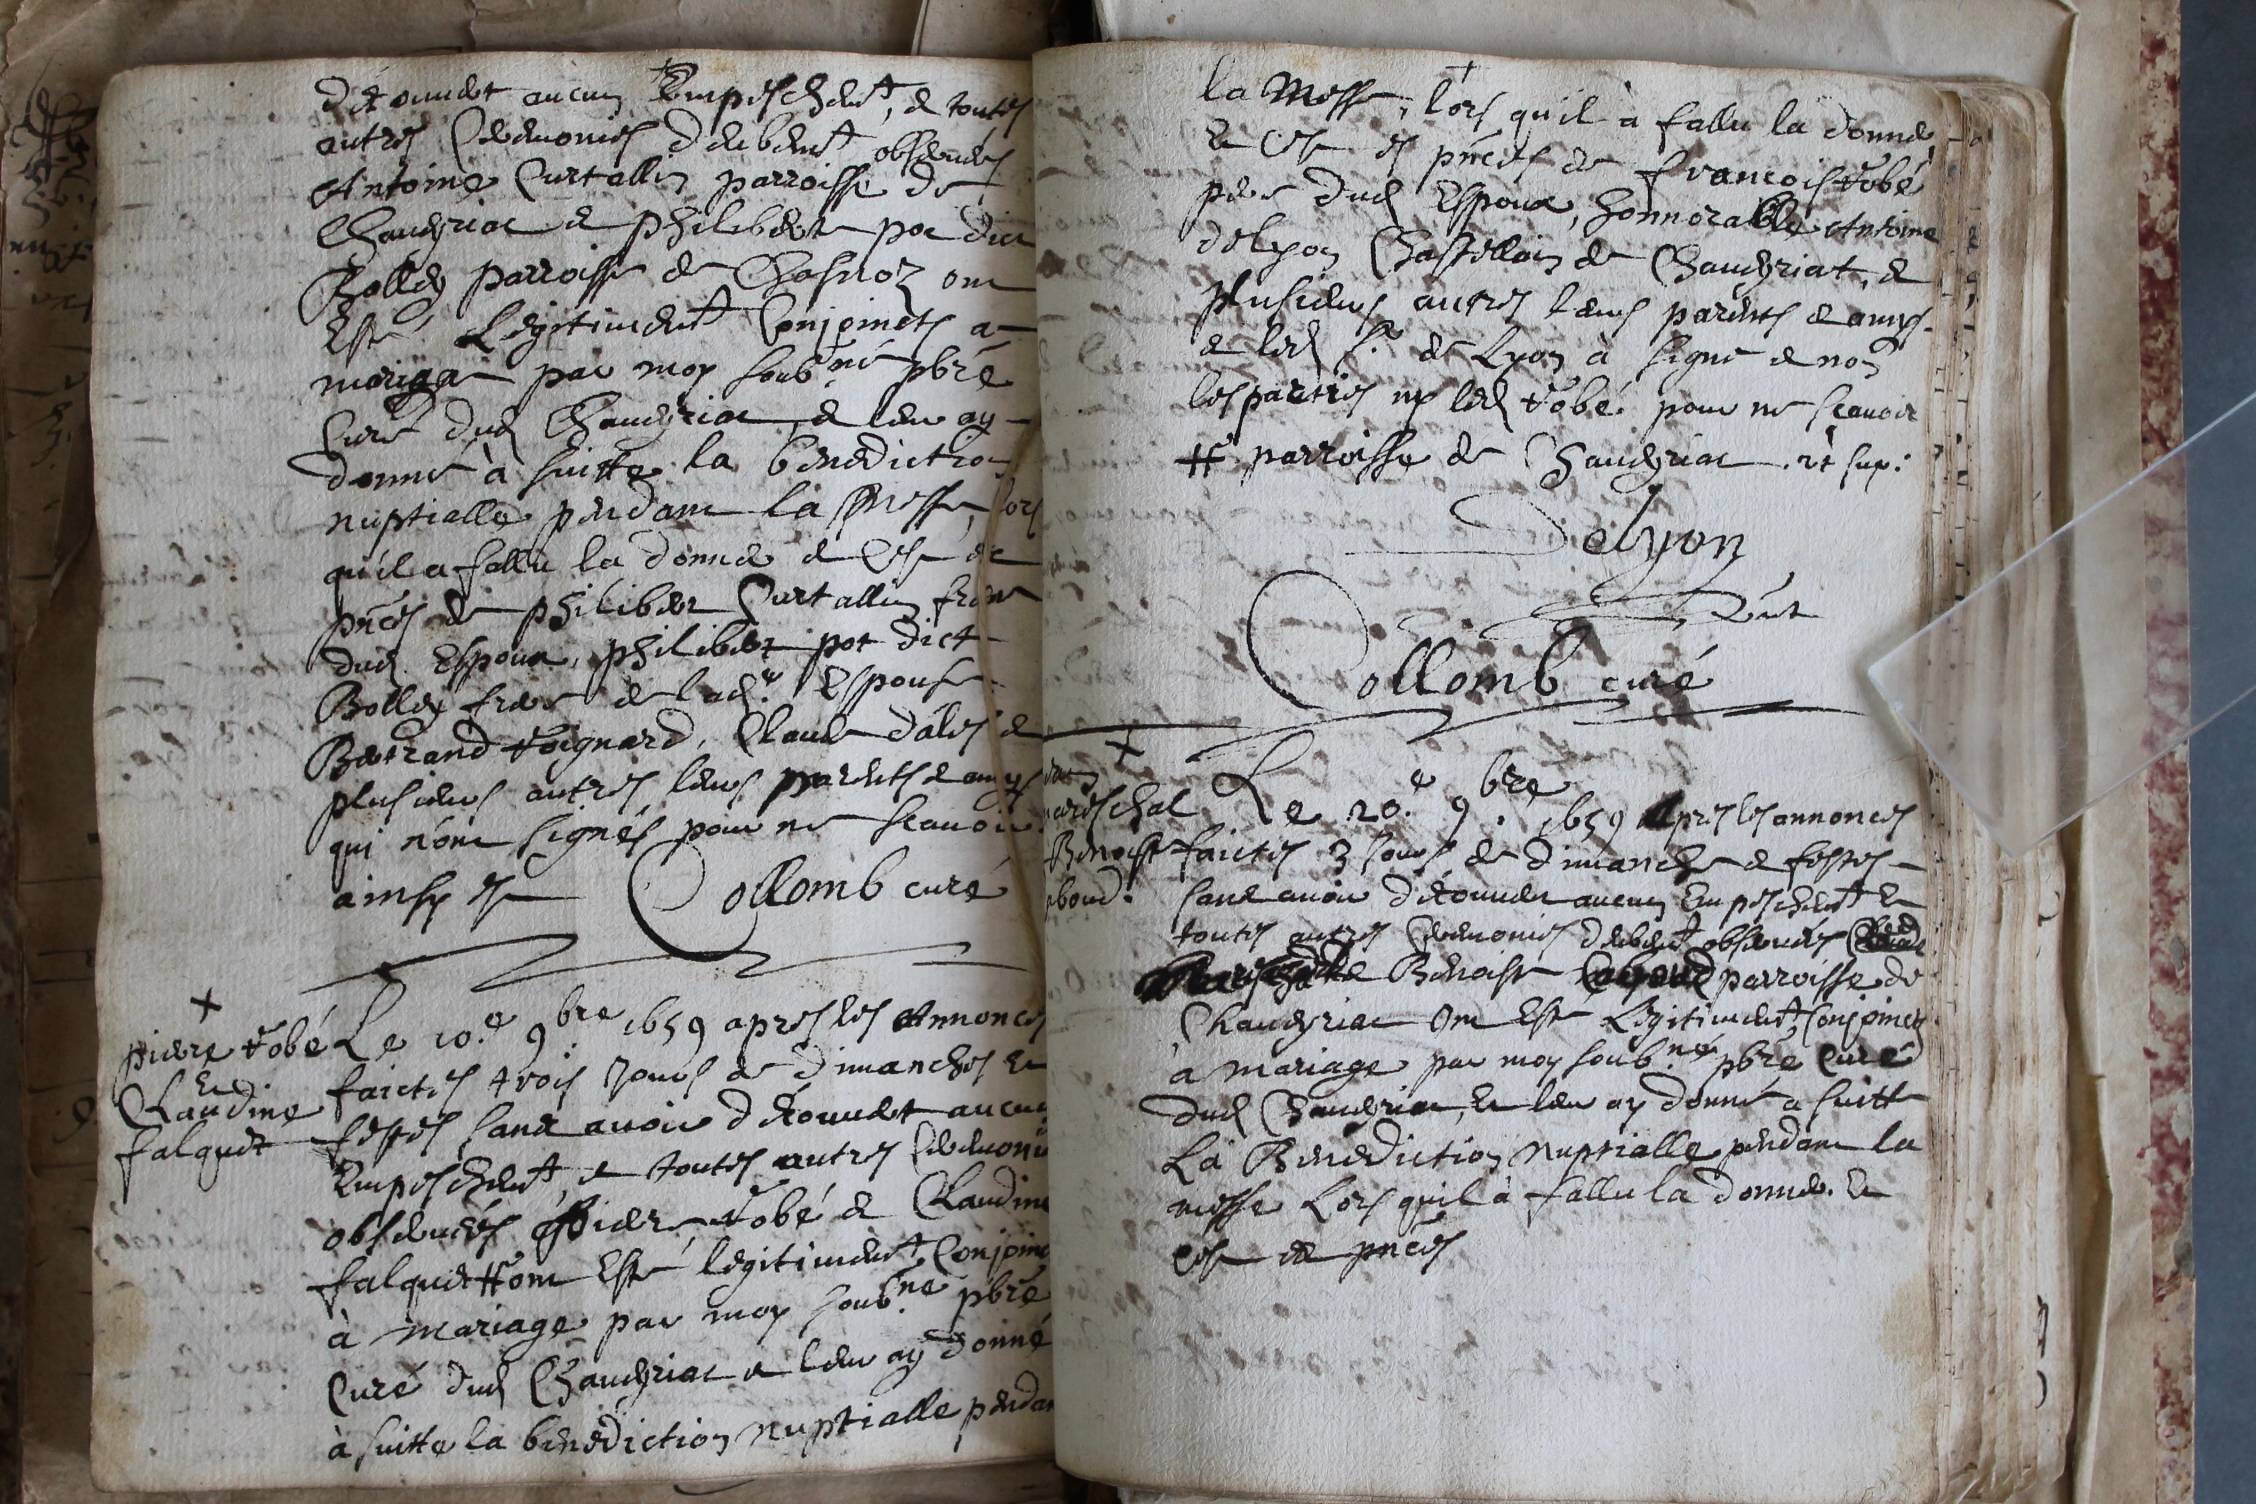 découvert aucun Empeschemt, & toutes
autres Ceremonies deubemt observées
Antoine Curtallin parroisse de
Chaveyriat & philiberte pot dict
Bolley parroisse de Chasnoz ont
Esté Legitimemt Conjoincts a
mariage par moy soubné pbrē
Curé dud Chaveyriat & leur ay
donné à suitte la benediction
nuptialle pendant la Messe, lors
qu'il a fallu la donner & Ce
pnces de philibert Curtallin frere
dud Espoux, philibert pot dict
Bolley frere de lade Espouse
Bertrand Voignard, Claude
plusieurs autres leurs parents & amys
qui n'ont signés pour ne scavoir
ainsy est Collomb curé
pierre Vobé
Et
Claudine
falquet
Le 10.e 9.bre 1659 apres les Annonces
faictes trois Jours de dimanches Et
festes sans avoir découvert aucun
Empeschemt, & toutes autres Ceremonies
observées pierre Vobé & Claudine
falquet # ont Esté legitimemt Conjoincts
à mariage par moy soubné pbrē
Curé dud Chaveyriat & leur ay donné
à suitte la benediction nuptialle pendant
la Messe, lors qu'il à fallu la donner
& Ce pnces de francois Vobé
pere dud Espoux, honnorable Antoine
delyon Chastellain de Chaveyriat, &
plusieurs autres leurs parents & amys.
& led sr de Lyon à signé & non
les parties ny led Vobé pour ne scavoir
# parroisse de Chaveyriat
Delyon
Collomb curé
mareschal
Benoist
Le 20.e 9.bre 1659 Apres les annonces
faictes 3 Jours de dimanche & festes
sans avoir découvert aucun Empeschemt Et
toutes autres Ceremonies deubemt observées
Benoist parroisse de
Chaveyriat Ont Esté Legitimemt Conjoincts
à Mariage par moy soubné pbrē Curé
dud Chaveyriat, Et leur ay donné a suitte
La Benediction Nuptialle pendant la
messe Lors qu'il à fallu la donner. Et
pnces